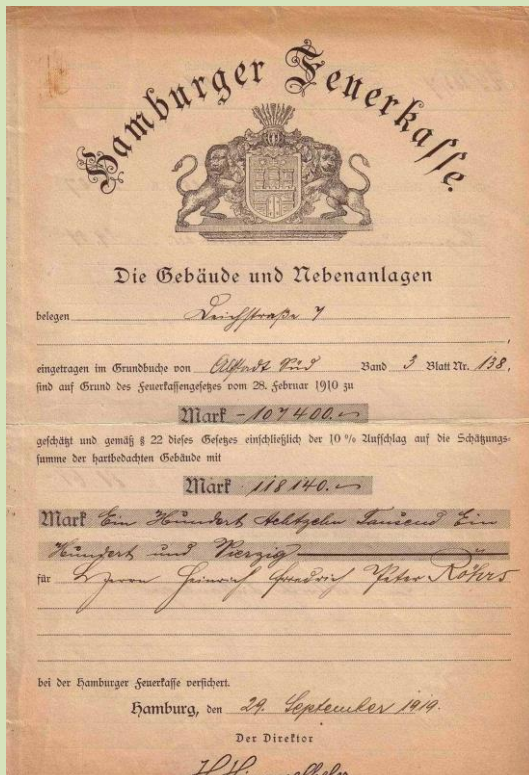 Hamburger Feuerkasse.
Die Gebäude und Nebenanlagen
belegen Deichstraße 7
,
eingetragen im Grundbuche von Altstadt Süd Band 3 Blatt Nr. 138,
sind auf Grund des Feuerkassengesetzes vom 28. Februar 1910 zu
Mark -107400.-
geschätzt und gemäß § 22 dieses Gesetzes einschließlich der 10 % Aufschlag auf die Schätzungs-
summe der hartbedachten Gebäude mit
Mark 118140.-
Mark Ein Hundert Achtzehn Tausend Ein
Hundert und Vierzig
für Herrn Heinrich Friedrich Peter Röhrs
bei der Hamburger Feuerkasse versichert.
Hamburg, den 29. September 1919.
Der Direktor